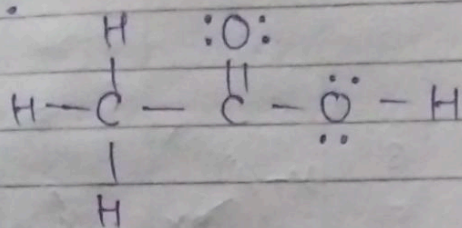 H :O:
H - C - C - Ö - H
H